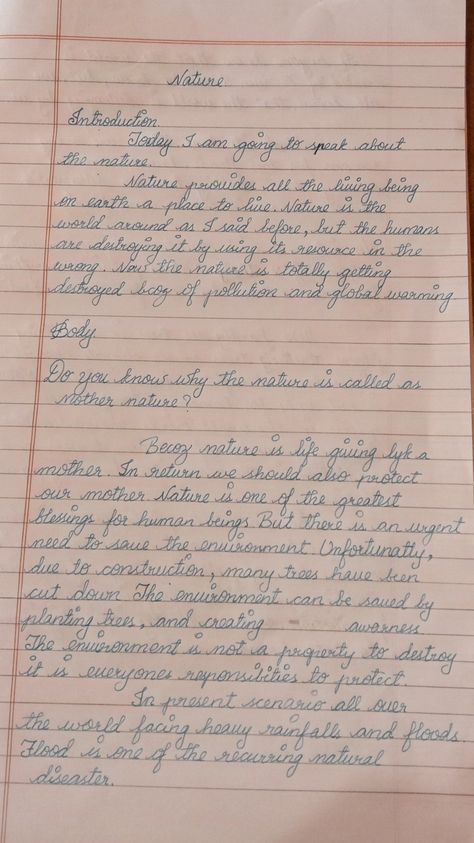 Nature.
Introduction.
Today I am going to speak about
the nature.
Nature provides all the living being
on earth a place to live. Nature is the
world around as I said before, but the humans
are destroying it by using its resource in the
wrong. Now the nature is totally getting
destroyed bcoz of pollution and global warming.
Body
Do you know why the nature is called as
mother nature?
Becoz nature is life giving lyk a
mother. In return we should also protect
our mother. Nature is one of the greatest
blessings for human beings. But there is an urgent
need to save the environment. Unfortunatly,
due to construction, many trees have been
cut down. The environment can be saved by
planting trees, and creating awarness.
The environment is not a property to destroy
it is everyones responsibities to protect.
In present scenario all over
the world facing heavy rainfalls and floods.
Flood is one of the recurring natural
disaster.